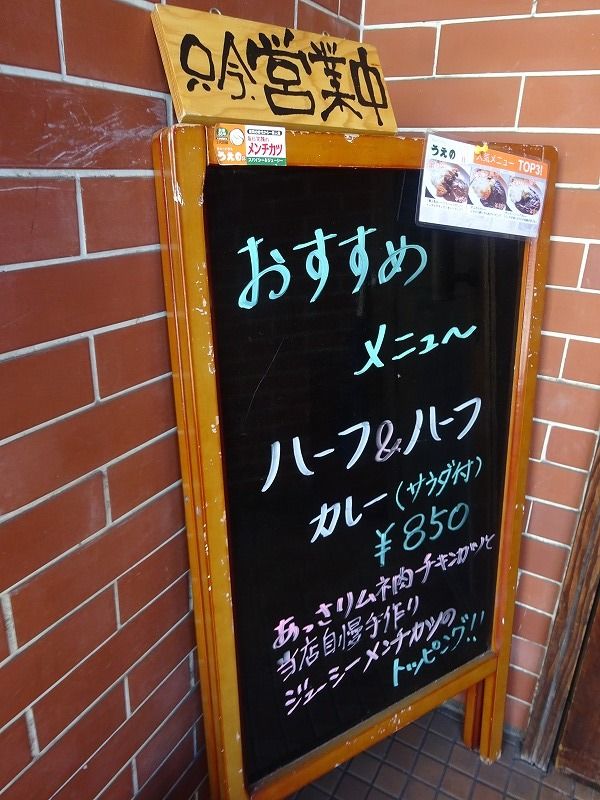 只今営業中
うえの
メンチカツ
スパイシー&ジューシー
うえの
人気メニュー TOP3!
おすすめ
メニュ〜
ハーフ&ハーフ
カレー(サラダ付)
¥850
あっさりムネ肉チキンカツと
当店自慢手作り
ジューシーメンチカツの
トッピング!!